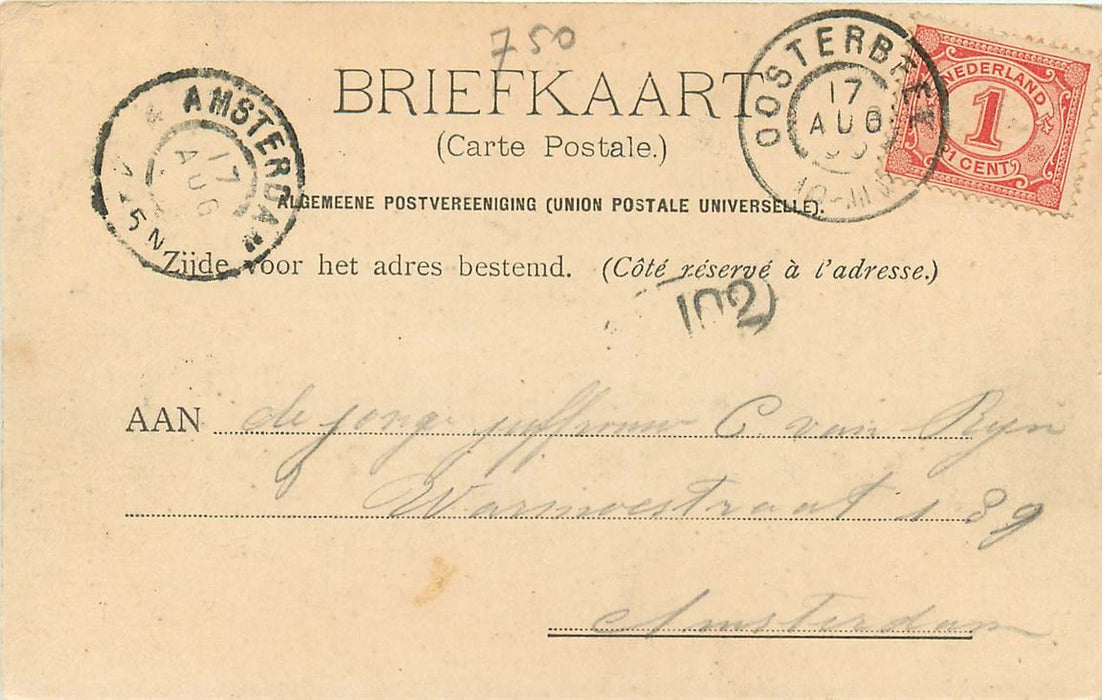 750
BRIEFKAART
(Carte Postale.)
ALGEMEENE POSTVEREENIGING (UNION POSTALE UNIVERSELLE).
Zijde voor het adres bestemd. (Côté réservé à l'adresse.)
OOSTERBEEK
17
AUG
NEDERLAND
1
1 CENT
AMSTERDAM
17
AUG
5 N
AAN de jonge juffrouw C. van Ryn
Warmoestraat 89
Amsterdam